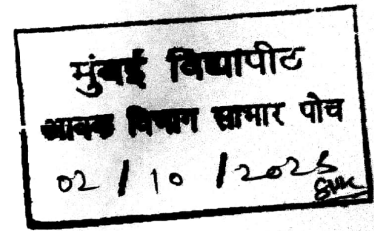 मुंबई विद्यापीठ
आवक विभाग साभार पोच
02 / 10 / 202